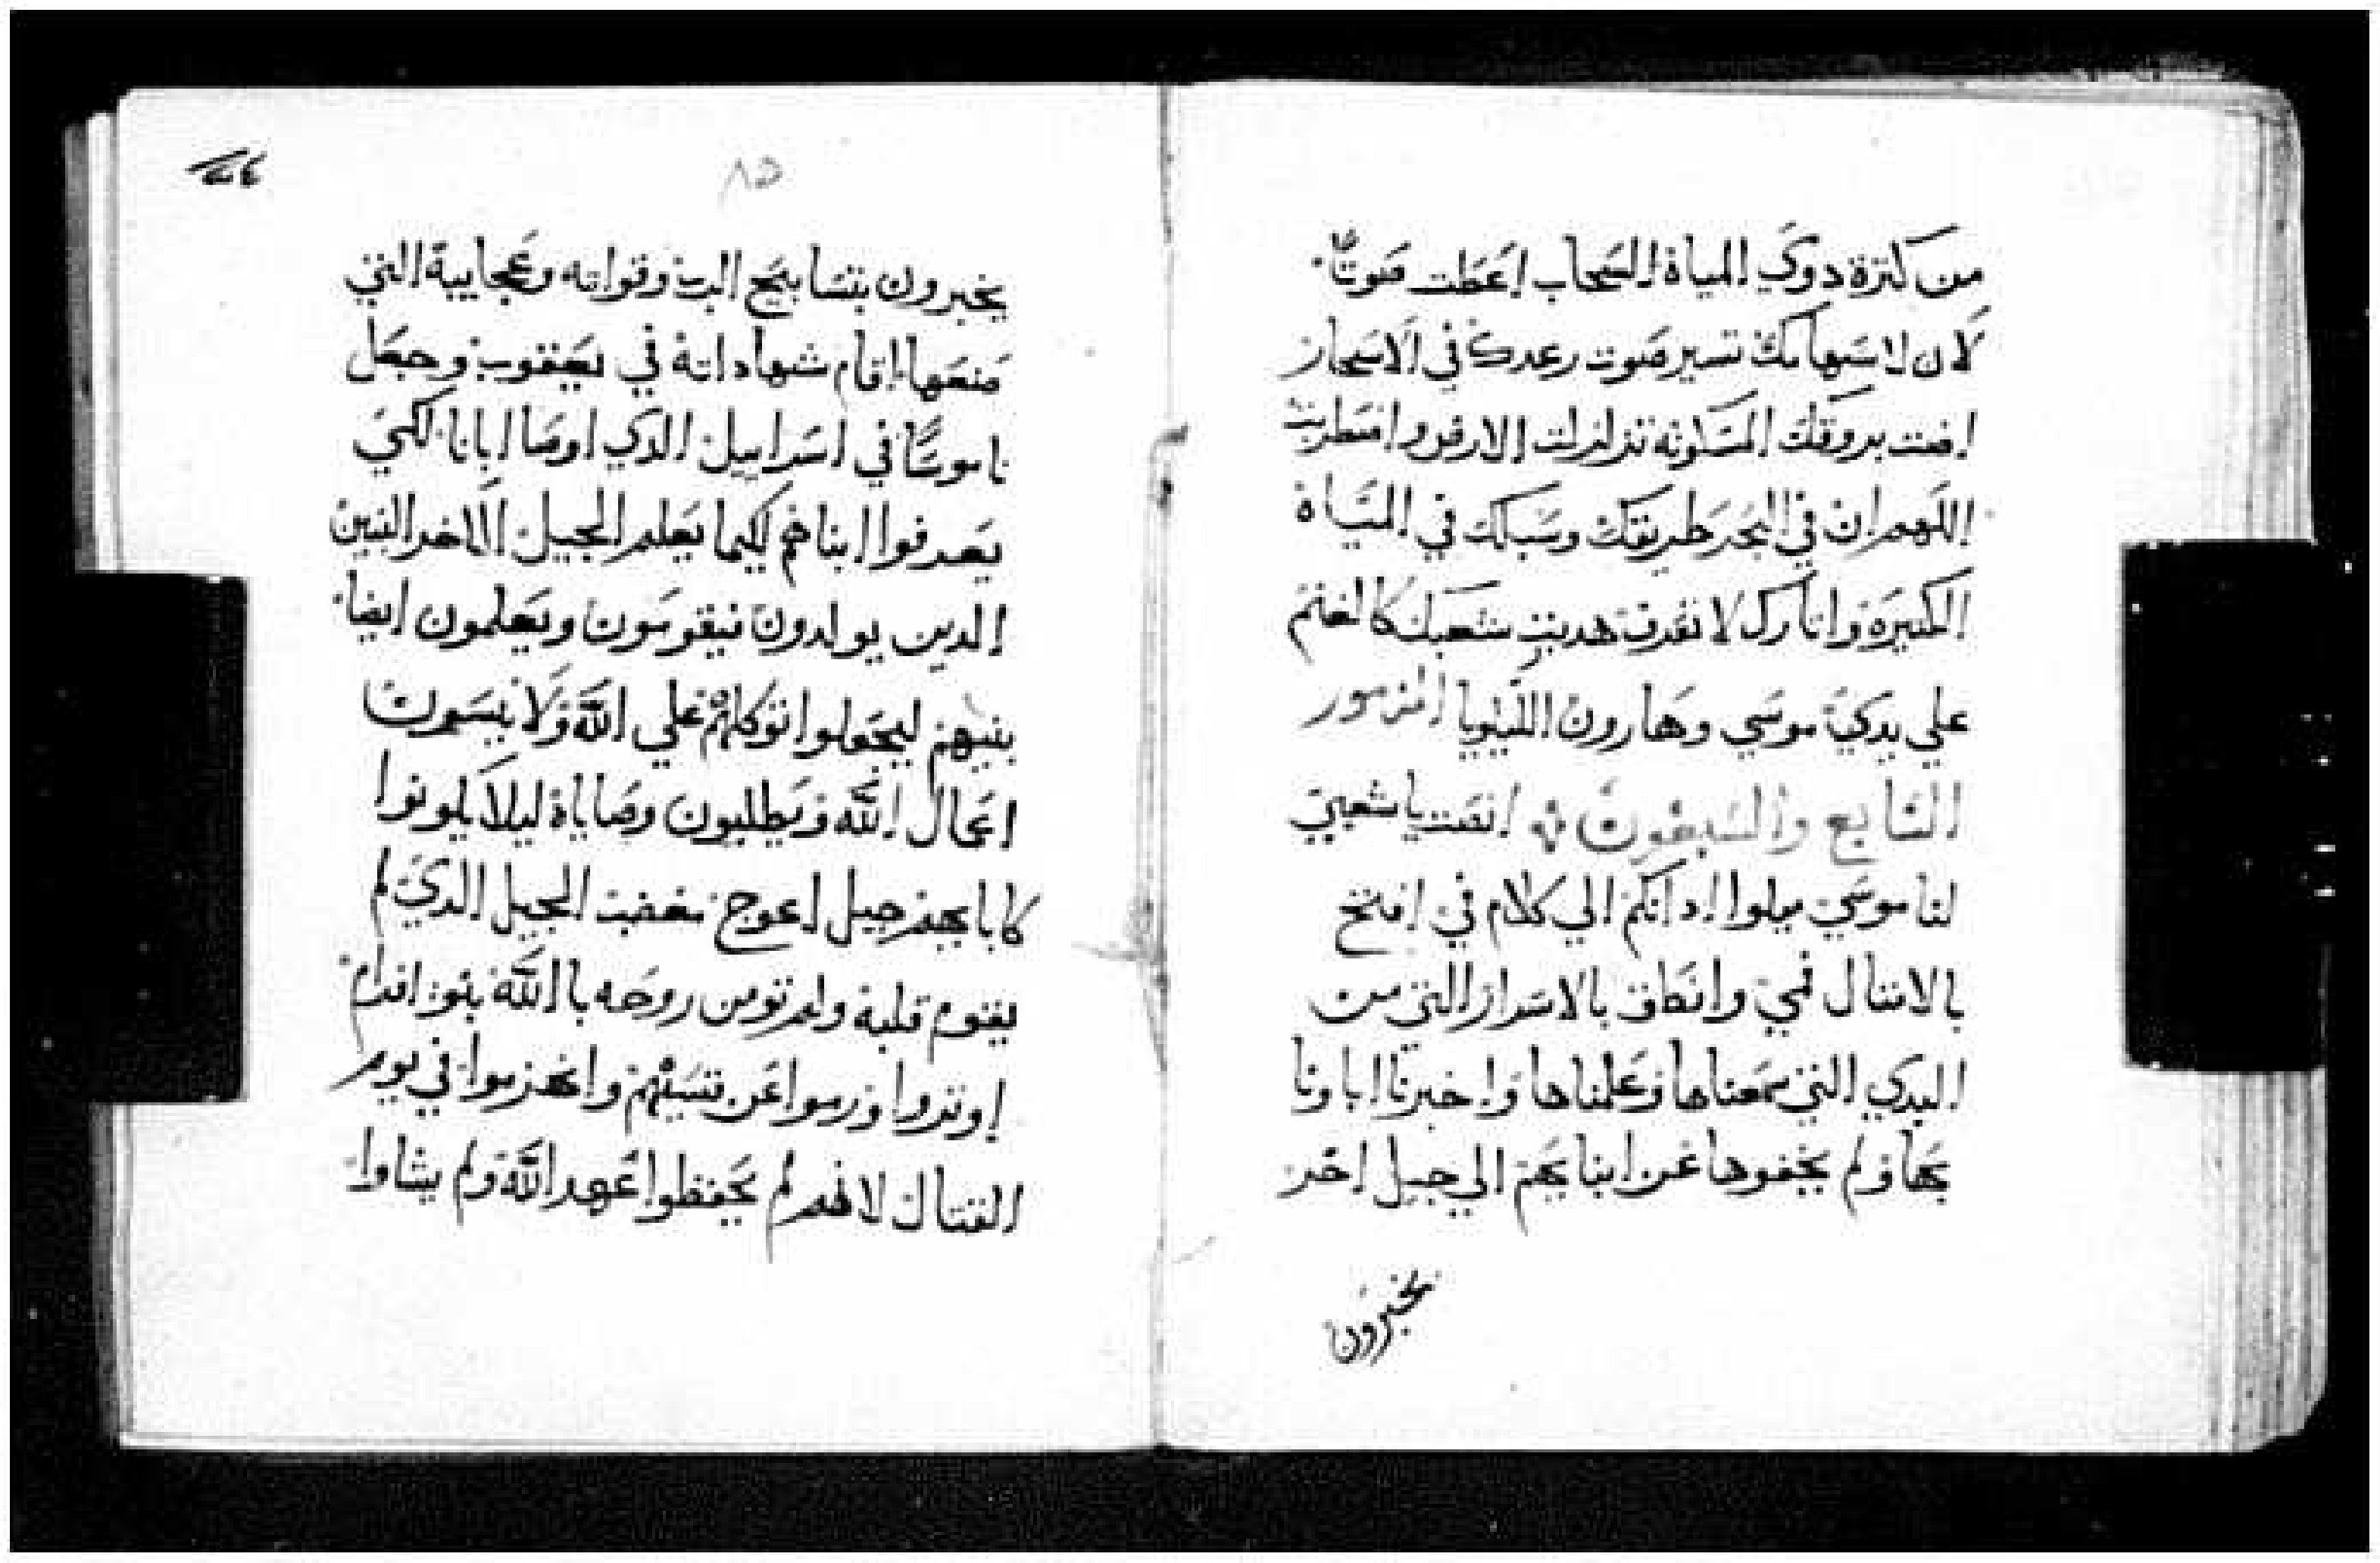 من كترة دوي المياة السحاب اعطت صوتًا
لان لا سهامك تسير صوت رعدك في الاسحار
اضت بروقك المسكونه تزلزلت الارض واضطربت
اللهم ان في البحر طريقك وسبلك في المياة
الكتيرة واتارك لا تقرف هديت شعبك كالغنم
علي يدي موسي وهارون الليلويا المزمور
السابع والسبعون انصت يا شعبي
لناموسي ميلوا ادانكم الي كلام في افتح
بالامتال فمي وانطق بالاسرار التي من
البدي التي سمعناها وعلمناها واخبرنا اباونا
بها ولم يخفوها عن ابنايهم الي جيل اخر
يخبرون
٨٥
يخبرون بتسابيح الرب وقواته وعجايبة التي
صنعها اقام شهاداتة في يعقوب وجعل
ناموسًا في اسراييل الدي اوصا ابانا لكي
يعرفوا ابناهم لكيما يعلم الجيل الاخر البنين
الدين يولدون فيقومون ويعلمون ايضا
بنيهم ليجعلوا توكلهم علي الله ولا ينسون
اعمال الله ويطلبون وصاياة ليلا يكونوا
كابايهم جيل اعوج مغضب الجيل الدي لم
يقوم قلبة ولم تومن روحه باالله بنوا افرام
اوتروا ورموا عن قسيهم وانهزموا في يوم
القتال لانهم لم يحفظوا عهد الله ولم يشاوا